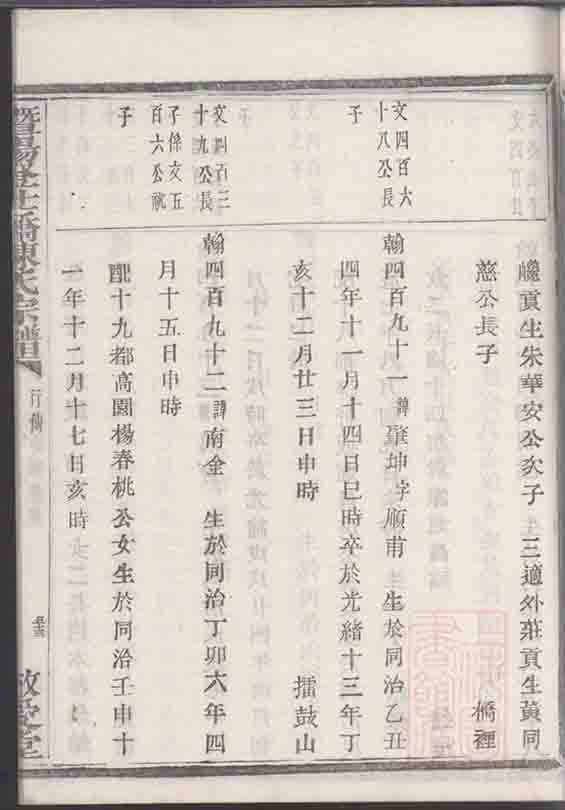 廩貢生朱華安公次子 三適外莊貢生黃同
慈公長子 橋裡
文四百六
十八公長
子
翰四百九十一諱肇坤字順甫 生於同治乙丑
四年十一月十四日巳時卒於光緒十三年丁
亥十二月廿三日申時 擂鼓山
文四百三
十九公長
子係文五
百六公祧
子
翰四百九十二諱南金 生於同治丁卯六年四
月十五日申時
配十九都高園楊春桃公女生於同治壬申十
一年十二月十七日亥時
暨陽 橋陳氏宗譜
行傳
敬愛堂